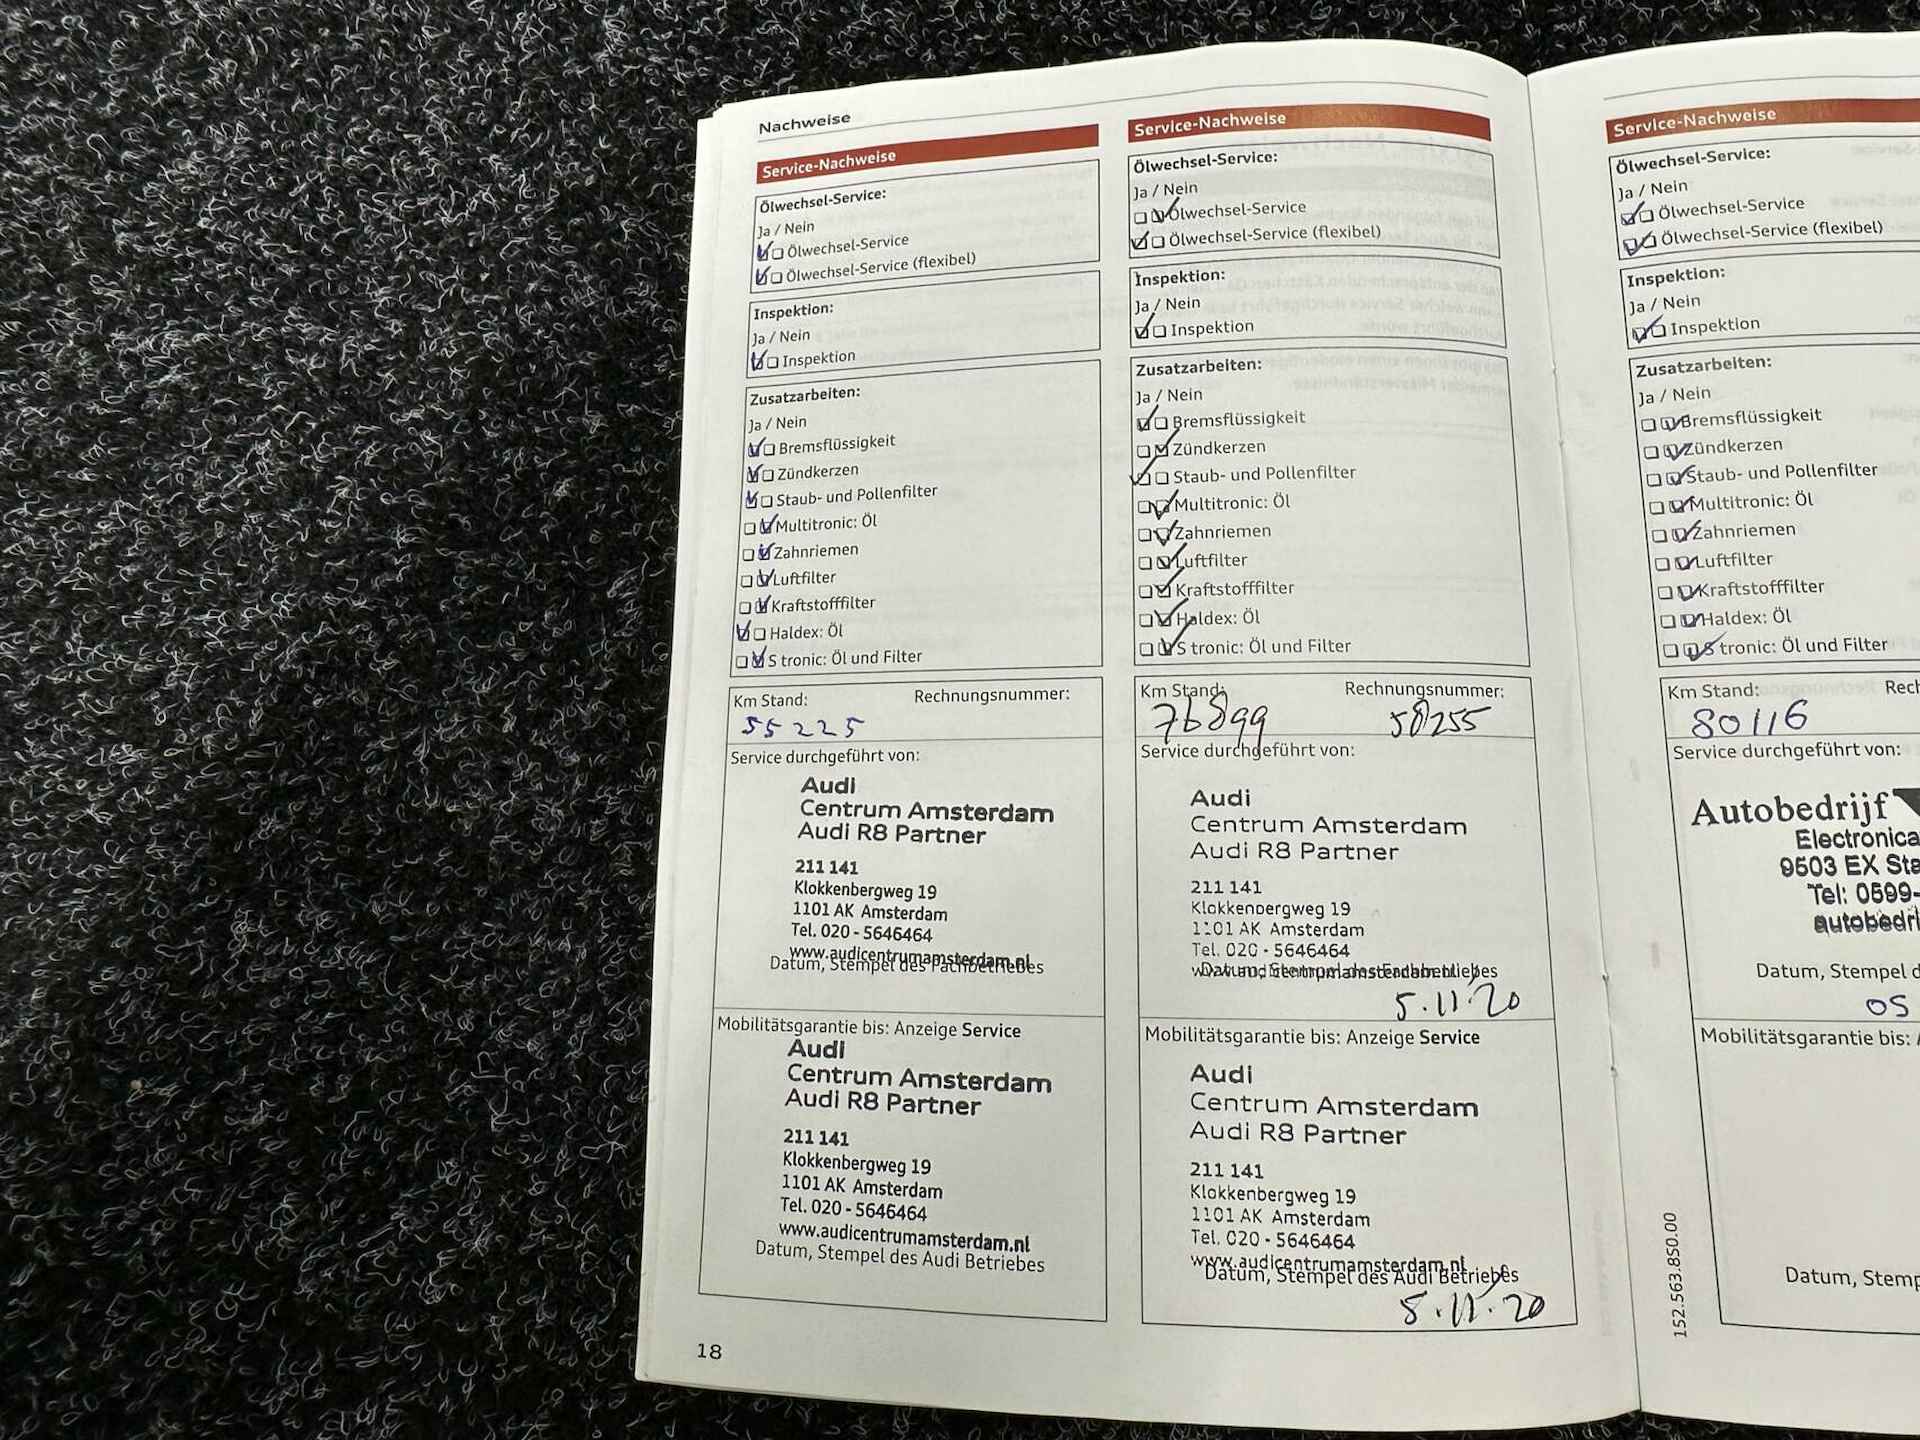 Nachweise
Service-Nachweise
Ölwechsel-Service:
Ja / Nein
Ölwechsel-Service
Ölwechsel-Service (flexibel)
Inspektion:
Ja / Nein
Inspektion
Zusatzarbeiten:
Ja / Nein
Bremsflüssigkeit
Zündkerzen
Staub- und Pollenfilter
Multitronic: Öl
Zahnriemen
Luftfilter
Kraftstofffilter
Haldex: Öl
S tronic: Öl und Filter
Km Stand: Rechnungsnummer:
55225
Service durchgeführt von:
Audi
Centrum Amsterdam
Audi R8 Partner
211 141
Klokkenbergweg 19
1101 AK Amsterdam
Tel. 020 - 5646464
www.audicentrumamsterdam.nl
Datum, Stempel des Fachbetriebes
Mobilitätsgarantie bis: Anzeige Service
Audi
Centrum Amsterdam
Audi R8 Partner
211 141
Klokkenbergweg 19
1101 AK Amsterdam
Tel. 020 - 5646464
www.audicentrumamsterdam.nl
Datum, Stempel des Audi Betriebes
18
Service-Nachweise
Ölwechsel-Service:
Ja / Nein
Ölwechsel-Service
Ölwechsel-Service (flexibel)
Inspektion:
Ja / Nein
Inspektion
Zusatzarbeiten:
Ja / Nein
Bremsflüssigkeit
Zündkerzen
Staub- und Pollenfilter
Multitronic: Öl
Zahnriemen
Luftfilter
Kraftstofffilter
Haldex: Öl
S tronic: Öl und Filter
Km Stand: Rechnungsnummer:
76899 58255
Service durchgeführt von:
Audi
Centrum Amsterdam
Audi R8 Partner
211 141
Klokkenbergweg 19
1101 AK Amsterdam
Tel. 020 - 5646464
www.audicentrumamsterdam.nl
Datum, Stempel des Fachbetriebes
5.11.20
Mobilitätsgarantie bis: Anzeige Service
Audi
Centrum Amsterdam
Audi R8 Partner
211 141
Klokkenbergweg 19
1101 AK Amsterdam
Tel. 020 - 5646464
www.audicentrumamsterdam.nl
Datum, Stempel des Audi Betriebes
5.11.20
Service-Nachweise
Ölwechsel-Service:
Ja / Nein
Ölwechsel-Service
Ölwechsel-Service (flexibel)
Inspektion:
Ja / Nein
Inspektion
Zusatzarbeiten:
Ja / Nein
Bremsflüssigkeit
Zündkerzen
Staub- und Pollenfilter
Multitronic: Öl
Zahnriemen
Luftfilter
Kraftstofffilter
Haldex: Öl
S tronic: Öl und Filter
Km Stand: Rech
80116
Service durchgeführt von:
Autobedrijf
Electronica
9503 EX Sta
Tel: 0599-
autobedri
Datum, Stempel d
05
Mobilitätsgarantie bis:
Datum, Stemp
152.563.850.00